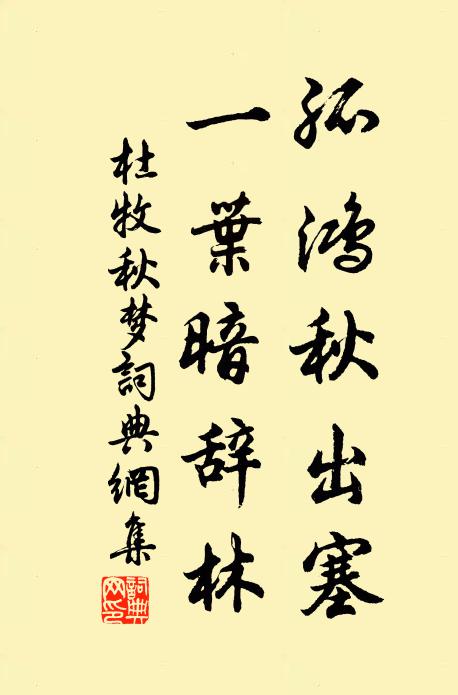 孤鸿秋出塞
一葉暗辞林
杜牧秋梦詞典網集
詞典网印